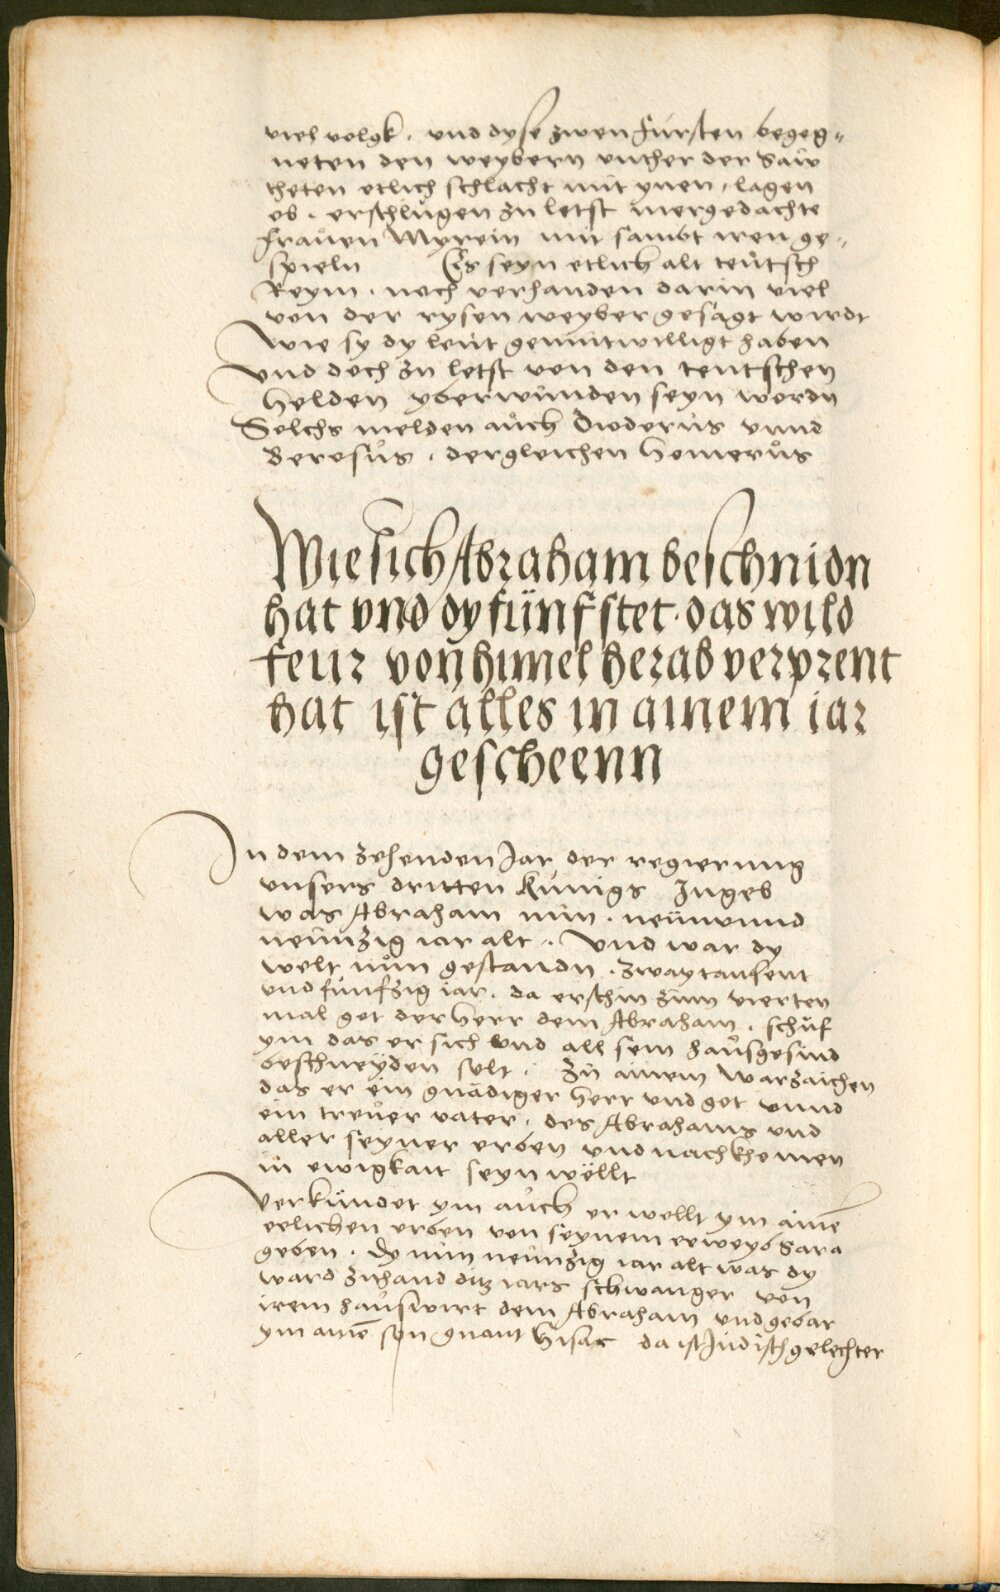 viel volgk . und dyse zwen Fürsten begeg=
neten den weybern unther der Saw
theten etlich schlacht mit ynen , lagen
ob . erschlügen zu letst mergedachte
Frauen Myrein mit sambt iren ge=
spieln Es seyn etlich alt teütsch
Reym . noch verhanden darin viel
von der rysen weyber gesagt wirdt
Wie sy dy leüt gemütwilligt haben
Und doch zu letst von den teutschen
Helden yberwunden seyn wordn
Solchs melden auch Dioderus unnd
Berosus . dergleichen Homerus
Wie sich Abraham beschnidn
hat vnd dy fünf stet . das wild
feur von himel herab verprent
hat ist alles in ainem iar
gescheenn
In dem zehenden Jar der regierung
unsers dritten Künigs Ingeb
was Abraham nun . neünunnd
neünzig iar alt . Und war dy
welt nun gestandn . zwaytausent
und fünfzig iar . da erschin zum vierten
mal got der herr dem Abraham . schuf
ym das er sich und all sein hausgesind
beschneyden solt . Zu ainem Warzaichen
das er ein gnädiger herr und got unnd
ein treuer vater . des Abrahams und
aller seyner erben und nachkhomen
in ewigkait seyn wöllt
Verkündet ym auch er wollt ym ainē
eelichen erben von seynem eeweyb Sara
geben . Dy nun neünzig iar alt was dy
ward zuhand ditz iars schwanger von
irem hauswirt dem Abraham und gebar
ym ainē sun gnant Hisac da ist Jüdisch gelechter